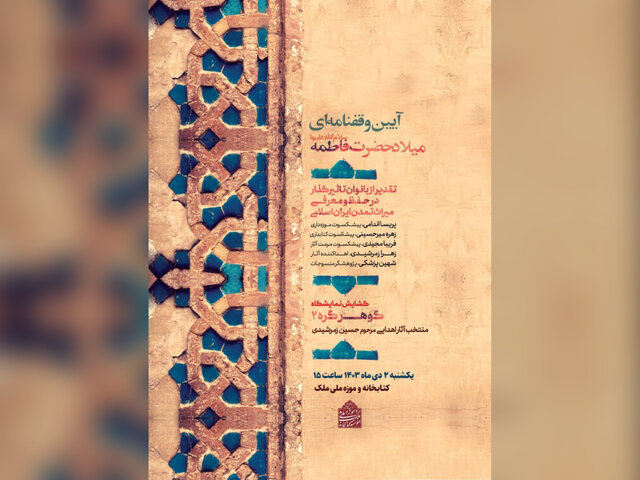 آیین وقفنامه‌ای
سلام‌الله‌علیها
میلاد حضرت فاطمه
تقدیر از بانوان تاثیرگذار
در حفظ و معرفی
میراث تمدن ایران اسلامی
پریسا اندامی، پیشکسوت موزه‌داری
زهره میرحسینی، پیشکسوت کتابداری
فریبا مجیدی، پیشکسوت مرمت آثار
زهرا زمرشیدی، اهداکننده آثار
شهین پزشکی، پژوهشگر منسوجات
گشایش نمایشگاه
گوهر گره ۲
منتخب آثار اهدایی مرحوم حسین زمرشیدی
یکشنبه ۲ دی ماه ۱۴۰۳ ساعت ۱۵
کتابخانه و موزه ملی ملک